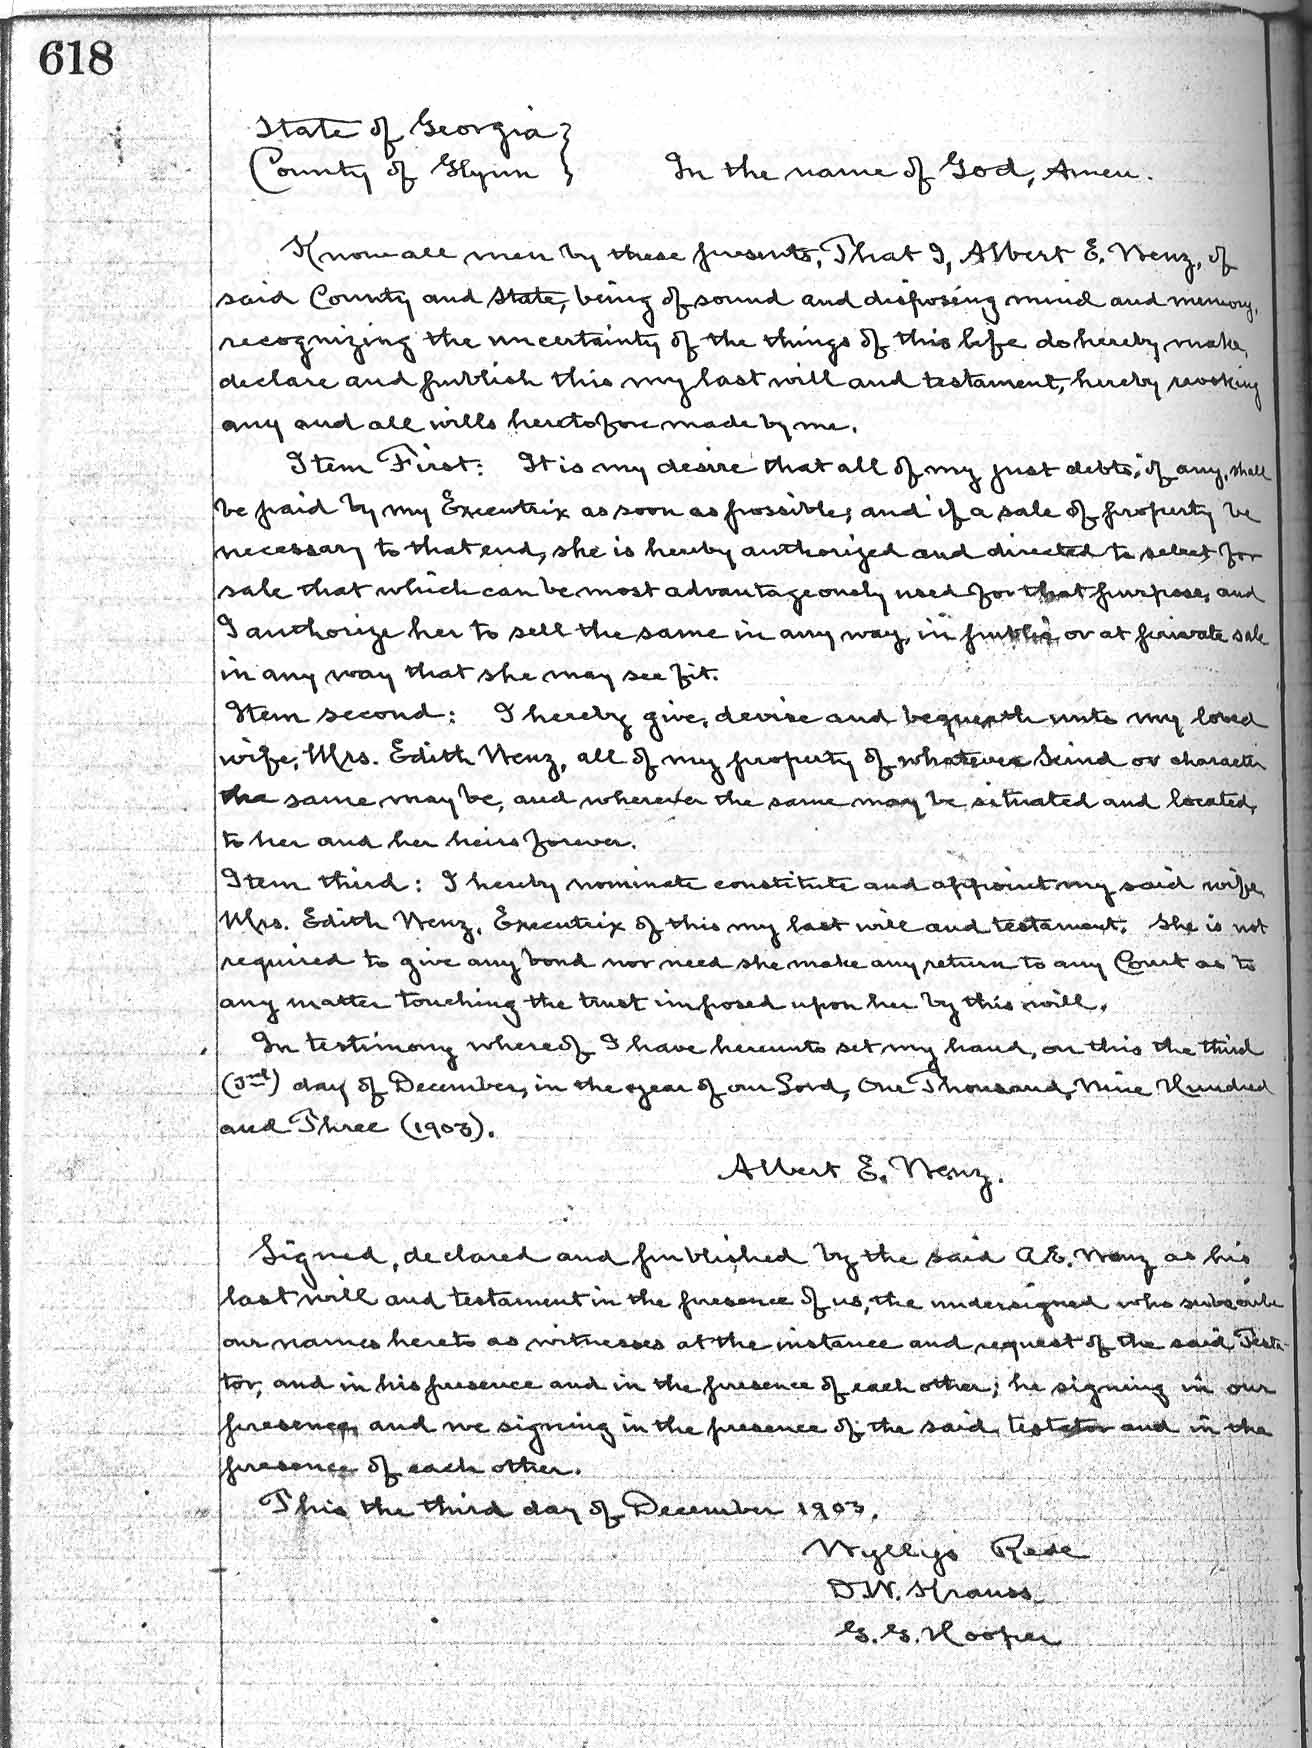 618
State of Georgia }
County of Glynn } In the name of God, Amen.
Know all men by these presents, That I, Albert E. Wenz, of
said County and State, being of sound and disposing mind and memory,
recognizing the uncertainty of the things of this life do hereby make,
declare and publish this my last will and testament, hereby revoking
any and all wills heretofore made by me.
Item First: It is my desire that all of my just debts, if any, shall
be paid by my Executrix as soon as possible, and if a sale of property be
necessary to that end, she is hereby authorized and directed to select for
sale that which can be most advantageously used for that purpose, and
I authorize her to sell the same in any way, in public or at private sale
in any way that she may see fit.
Item second: I hereby give, devise and bequeath unto my loved
wife, Mrs. Edith Wenz, all of my property of whatever kind or character
the same may be, and wherever the same may be situated and located,
to her and her heirs forever.
Item third: I hereby nominate constitute and appoint my said wife,
Mrs. Edith Wenz, Executrix of this my last will and testament. She is not
required to give any bond nor need she make any return to any Court as to
any matter touching the trust imposed upon her by this will.
In testimony whereof I have hereunto set my hand, on this the third
(3rd) day of December, in the year of our Lord, One Thousand, Nine Hundred
and Three (1903).
Albert E. Wenz.
Signed, declared and published by the said A.E. Wenz as his
last will and testament in the presence of us, the undersigned who subscribe
our names hereto as witnesses at the instance and request of the said Testa-
tor, and in his presence and in the presence of each other; he signing in our
presence, and we signing in the presence of the said testator and in the
presence of each other.
This the third day of December 1903.
Wyllys Rede
D.W. Krauss
G. G. Hooper